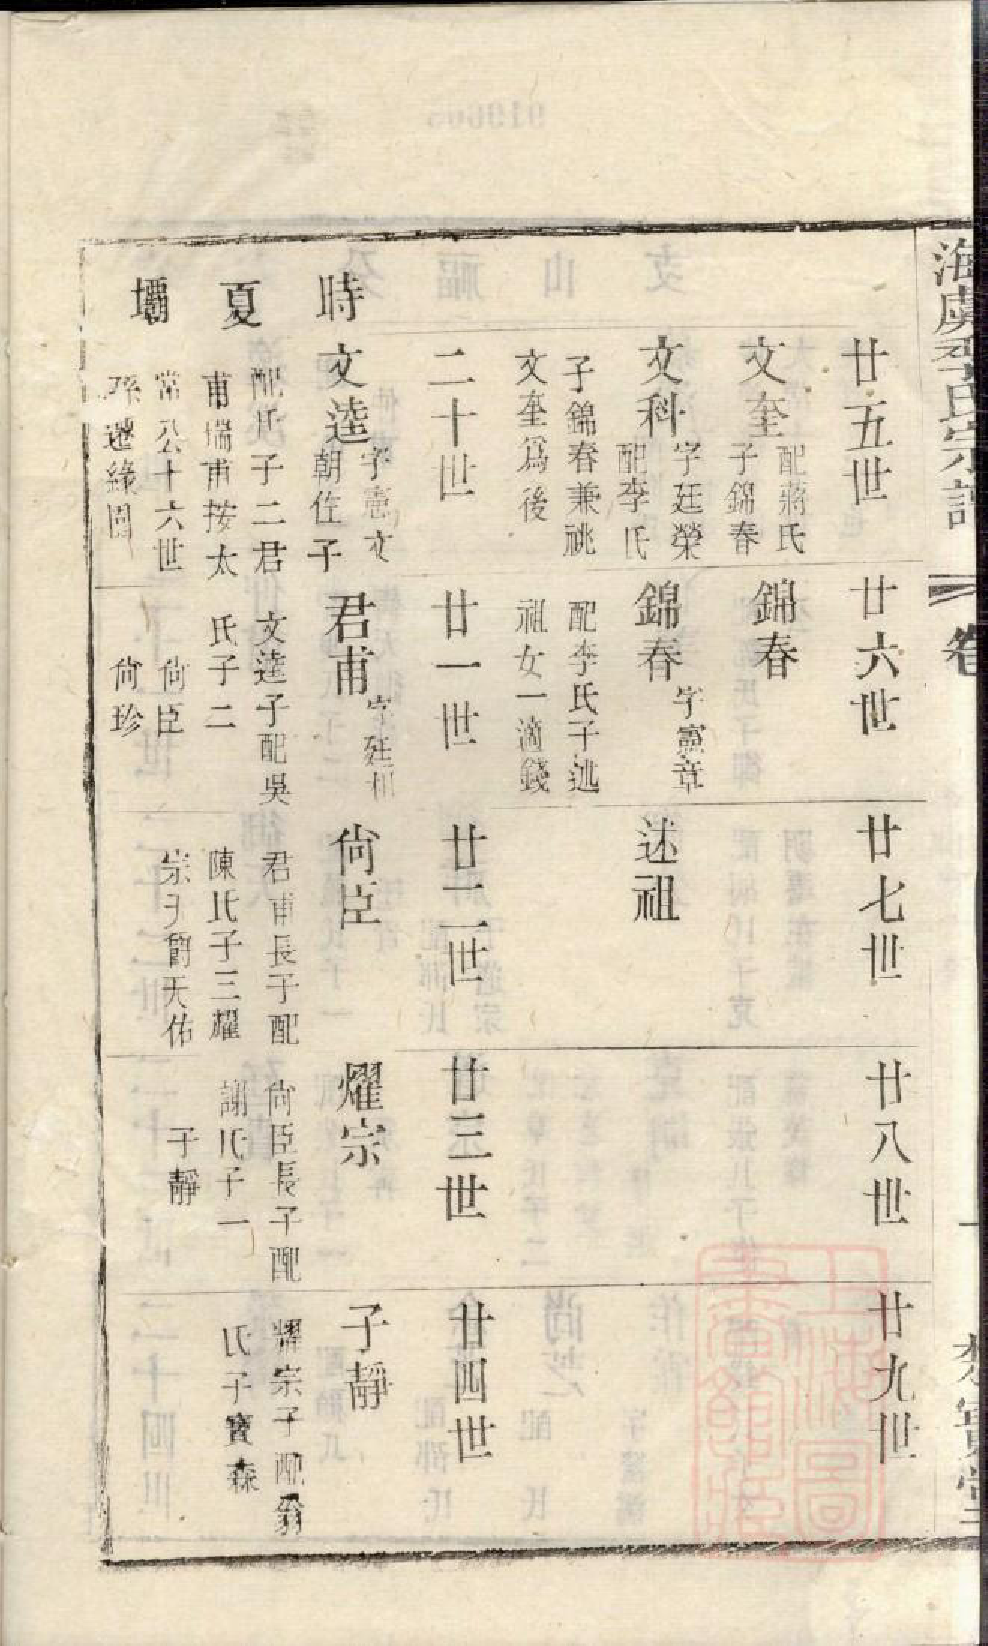 海虞李氏宗譜
卷
廿五世
文奎
配蔣氏
子錦春
文科
字廷榮
配李氏
子錦春兼祧
文奎爲後
廿六世
錦春
錦春
字憲章
配李氏子述
祖女一適錢
廿七世
述祖
廿八世
廿九世
時
夏
壩
二十世
文逵
字憲文
朝佐子
配氏子二君
甫瑞甫按太
常公十六世
孫遷緣圖
廿一世
君甫
字廷相
文逵子配吳
氏子二
尙臣
尙珍
廿二世
尙臣
君甫長子配
陳氏子三耀
宗子簡天佑
廿三世
耀宗
尙臣長子配
謝氏子一
子靜
廿四世
子靜
耀宗子配翁
氏子寶森
上海圖
書館藏